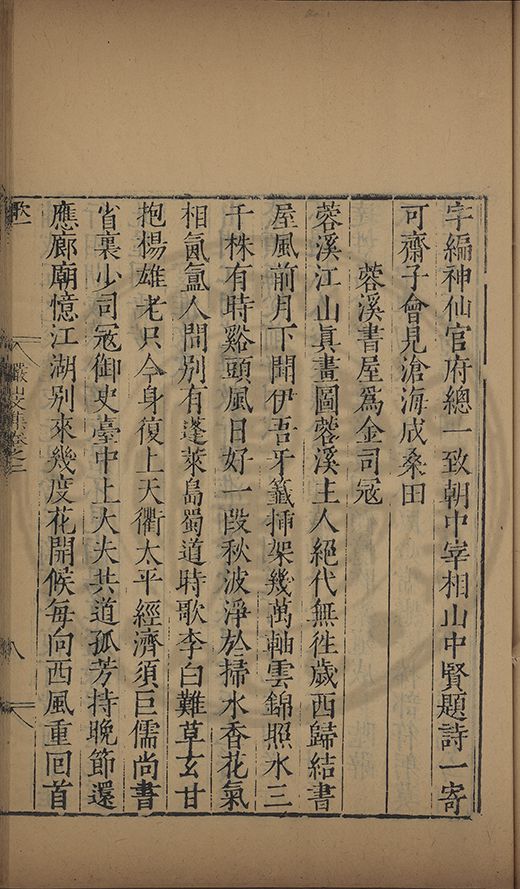 字編神仙官府總一致朝中宰相山中賢題詩一寄
可齋子會見滄海成桑田
蓉溪書屋爲金司寇
蓉溪江山真畫圖蓉溪主人絕代無徃歲西歸結書
屋風前月下聞伊吾牙籤揷架幾萬軸雲錦照水三
千株有時谿頭風日好一段秋波淨於掃水香花氣
相氤氳人間別有蓬萊島蜀道時歌李白難草玄甘
抱楊雄老只今身復上天衢太平經濟須巨儒尚書
省裏少司寇御史臺中上大夫共道孤芳持晚節還
應廊廟憶江湖別來幾度花開候每向西風重回首
歌一
儼山文集卷之二
八